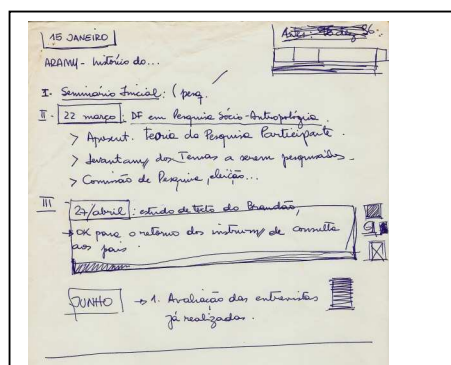 15 JANEIRO
Antes: 16 dez 86
ARAMY - histórico do...
I. Seminário Inicial: (perq.
II - 22 março: DF em Pesquisa Sócio-Antropológica.
> Apresent. Teoria da Pesquisa Participante.
> Levantam/ dos Temas a serem pesquisados.
> Comissão de Pesquisa, eleição...
III
27/abril: estudo de texto do Brandão,
→ OK para o retorno dos instrum/ de consulta
aos pais.
JUNHO → 1. Avaliação das entrevistas
já realizadas.